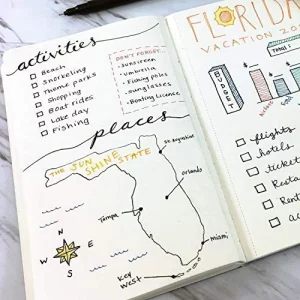 activities
Beach
Snorkeling
Theme parks
Shopping
Boat rides
Lake day
Fishing
DON'T FORGET..
-Sunscreen
-umbrella
-Fishing poles
-sunglasses
-Boating Licence
places
THE SUN
SHINE STATE
St. Augustine
Orlando
Tampa
Miami
Key
West
N
W
E
S
FLORIDA
VACATION
BUDGET
flights
hotels
ticket
Resta
Rent